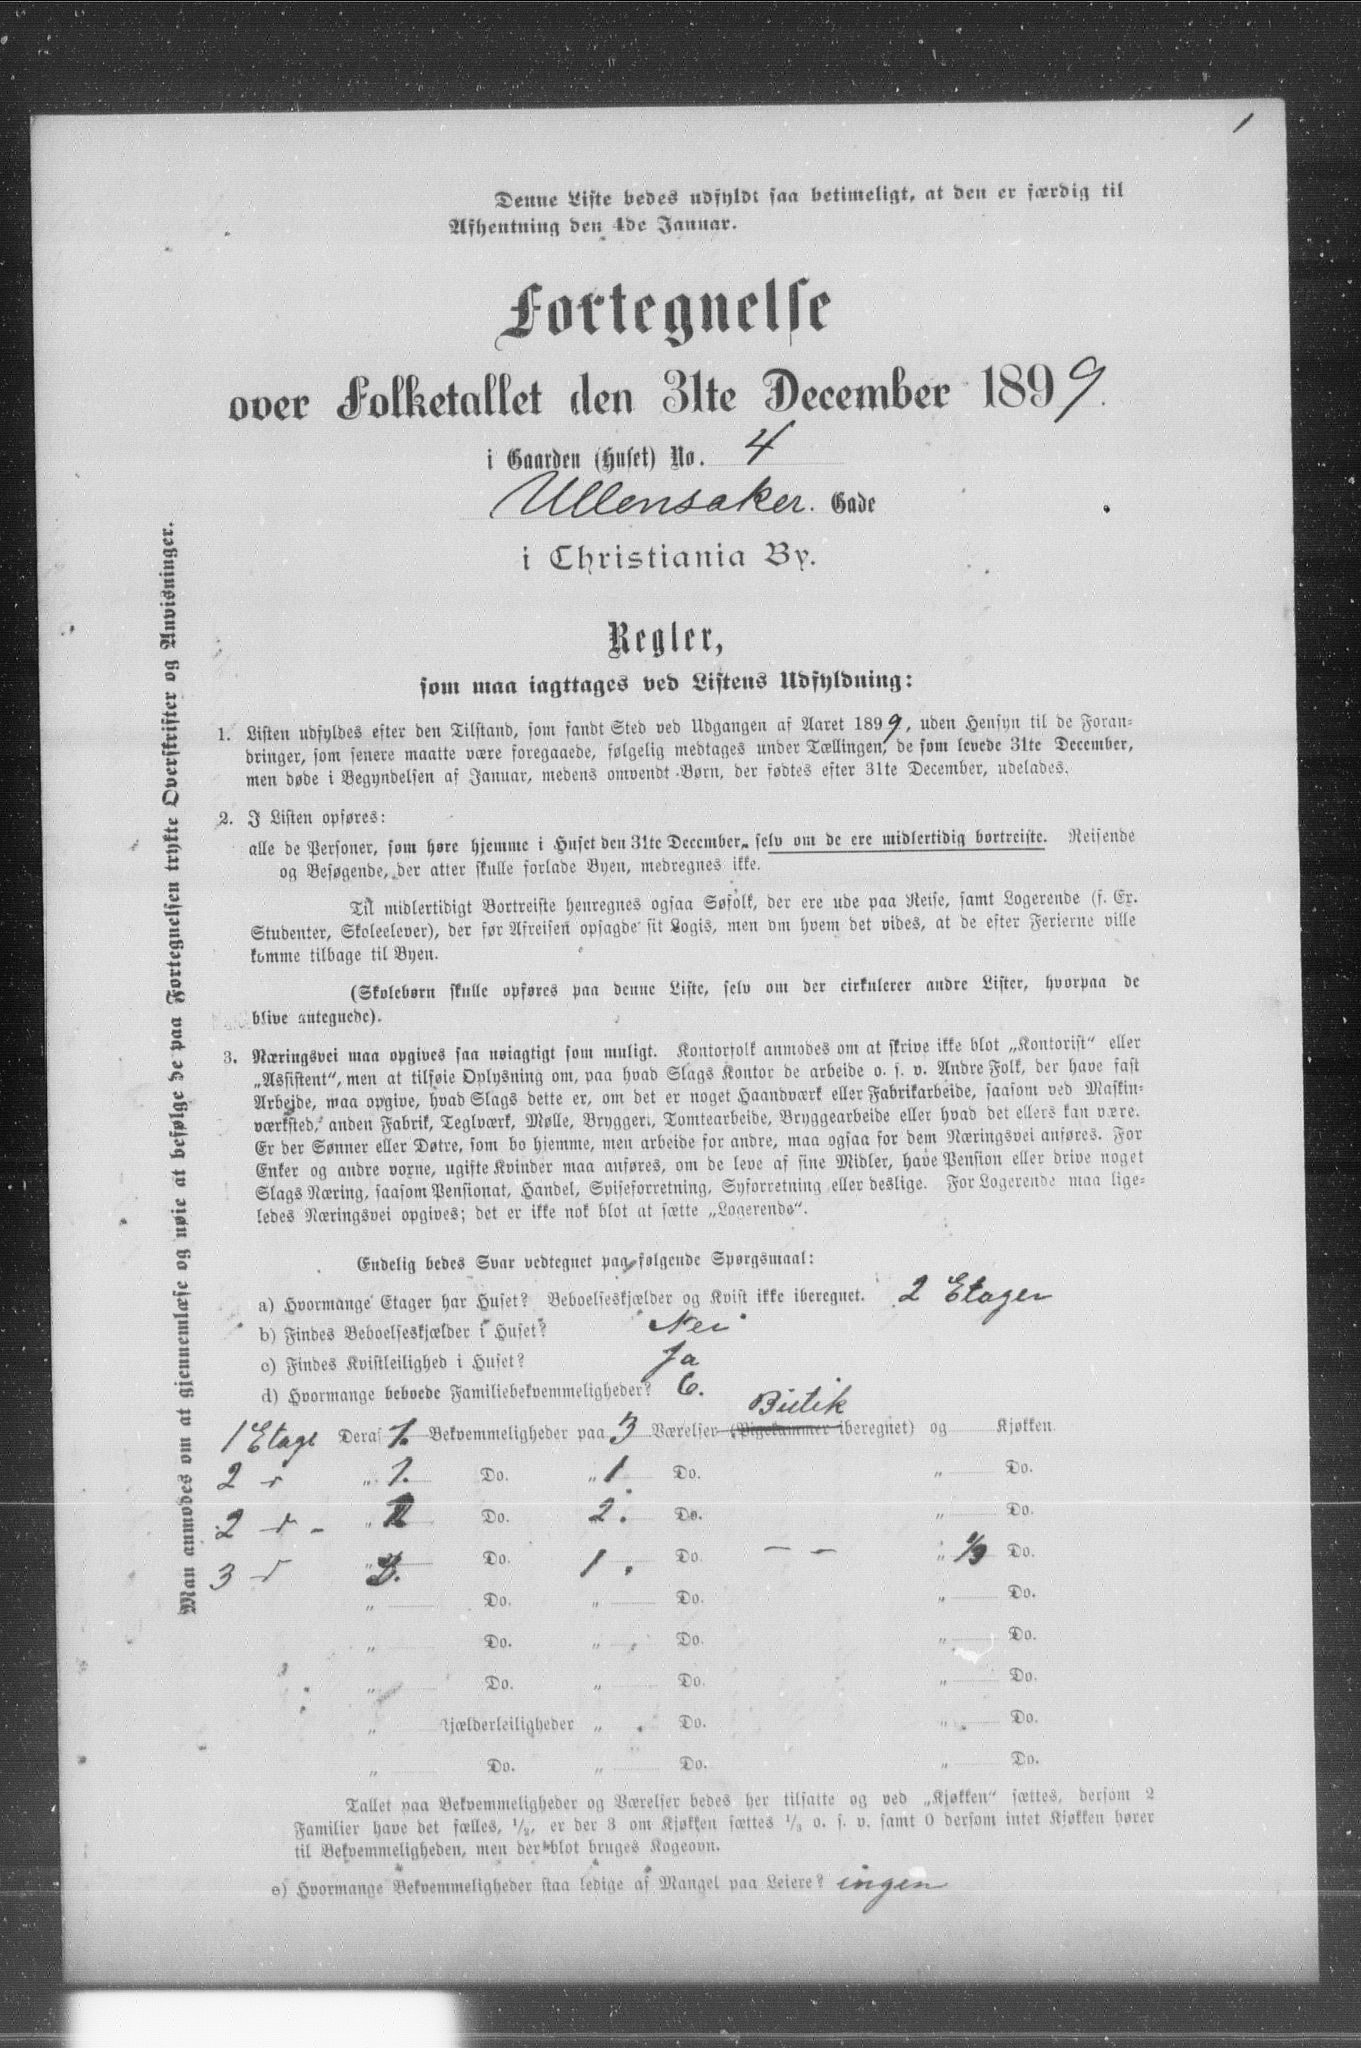 1
Denne Liste bedes udfyldt saa betimeligt, at den er færdig til
Afhentning den 4de Januar.
Fortegnelse
over Folketallet den 31te December 1899.
i Gaarden (Huset) No. 4
Ullensaker. Gade
i Christiania By.
Regler,
som maa iagttages ved Listens Udfyldning:
1. Listen udfyldes efter den Tilstand, som fandt Sted ved Udgangen af Aaret 1899, uden Hensyn til de Foran-
dringer, som senere maatte være foregaaede, følgelig medtages under Tællingen, de som levede 31te December,
men døde i Begyndelsen af Januar, medens omvendt Børn, der fødtes efter 31te December, udelades.
2. I Listen opføres:
alle de Personer, som høre hjemme i Huset den 31te December, selv om de ere midlertidig bortreiste. Reisende
og Besøgende, der atter skulle forlade Byen, medregnes ikke.
Til midlertidigt Bortreiste henregnes ogsaa Søfolk, der ere ude paa Reise, samt Logerende (f. Ex.
Studenter, Skoleelever), der før Afreisen opsagde sit Logis, men om hvem det vides, at de efter Ferierne ville
komme tilbage til Byen.
(Skolebørn skulle opføres paa denne Liste, selv om der cirkulerer andre Lister, hvorpaa de
blive antegnede).
3. Næringsvei maa opgives saa nøiagtigt som muligt. Kontorfolk anmodes om at skrive ikke blot „Kontorist" eller
„Assistent", men at tilføie Oplysning om, paa hvad Slags Kontor de arbeide o. s. v. Andre Folk, der have fast
Arbejde, maa opgive, hvad Slags dette er, om det er noget Haandværk eller Fabrikarbeide, saasom ved Maskin-
værksted, anden Fabrik, Teglværk, Mølle, Bryggeri, Tomtearbeide, Bryggearbeide eller hvad det ellers kan være.
Er der Sønner eller Døtre, som bo hjemme, men arbeide for andre, maa ogsaa for dem Næringsvei anføres. For
Enker og andre voxne, ugifte Kvinder maa anføres, om de leve af sine Midler, have Pension eller drive noget
Slags Næring, saasom Pensionat, Handel, Spiseforretning, Syforretning eller deslige. For Logerende maa lige-
ledes Næringsvei opgives; det er ikke nok blot at sætte „Logerende".
Endelig bedes Svar vedtegnet paa følgende Spørgsmaal:
a) Hvormange Etager har Huset? Beboelseskjælder og Kvist ikke iberegnet. 2 Etager
b) Findes Beboelseskjælder i Huset? Nei
c) Findes Kvistleilighed i Huset? Ja
d) Hvormange beboede Familiebekvemmeligheder? 6.
Butik
1 Etage Deraf 1. Bekvemmeligheder paa 3 Værelser (Pigekammer iberegnet) og Kjøkken
2 " 1. Do. „ 1 Do. „ Do.
2 " - „ 2 Do. 2. Do. „ Do.
3 " „ 2. Do. 1. Do. – – „ 1/3 Do.
„ Do. „ Do. „ Do.
„ Do. „ Do. „ Do.
„ Do. „ Do. „ Do.
„ Kjælderleiligheder „ Do. „ Do.
„ Do. „ Do. „ Do.
Tallet paa Bekvemmeligheder og Værelser bedes her tilsatte og ved „Kjøkken" sættes, dersom 2
Familier have det fælles, 1/2, er der 3 om Kjøkken sættes 1/3 o. s. v. samt 0 dersom intet Kjøkken hører
til Bekvemmeligheden, men der blot bruges Kogeovn.
e) Hvormange Bekvemmeligheder staa ledige af Mangel paa Leiere? ingen
Man anmodes om at gjennemlæse og nøie at befølge de paa Fortegnelsen trykte Overskrifter og Anvisninger.